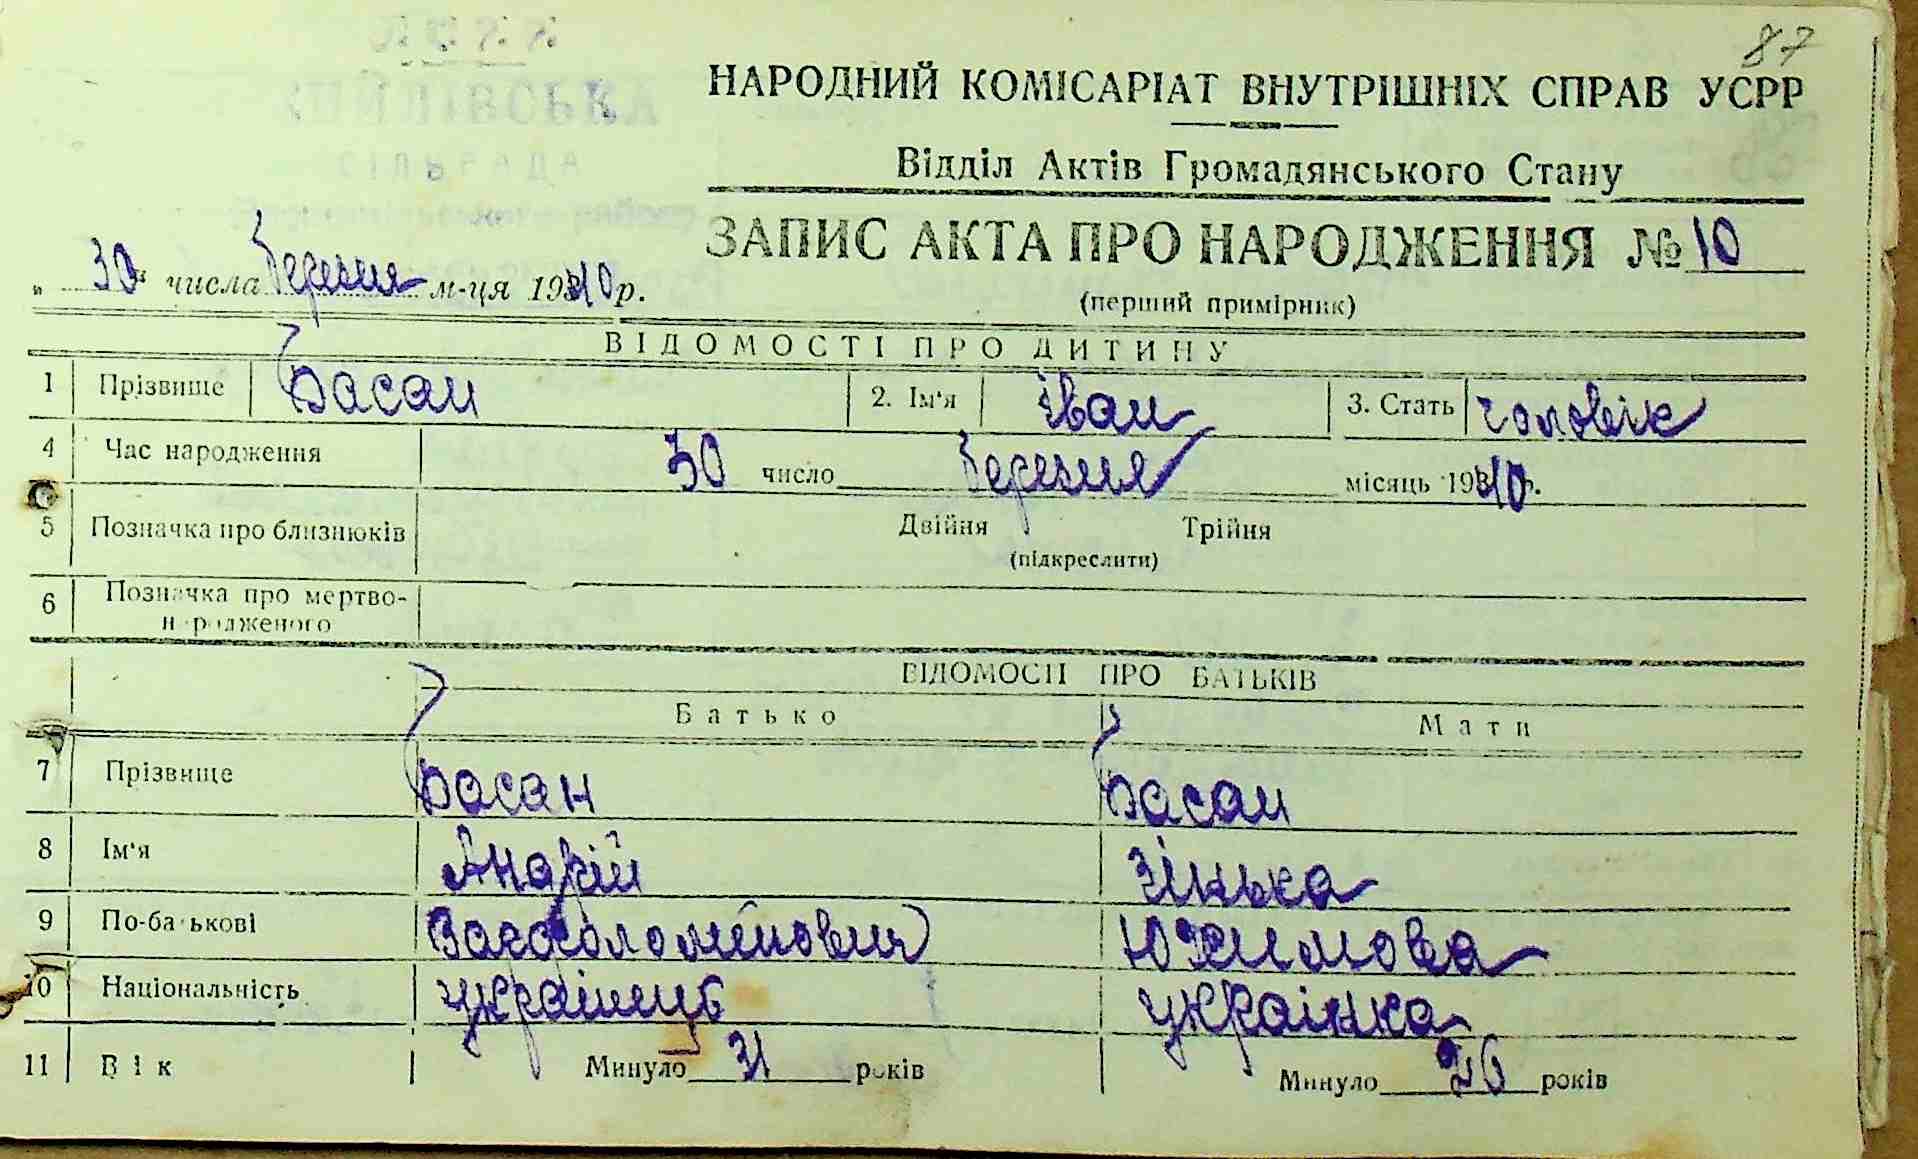 87
НАРОДНИЙ КОМІСАРІАТ ВНУТРІШНІХ СПРАВ УСРР
Відділ Актів Громадянського Стану
ЗАПИС АКТА ПРО НАРОДЖЕННЯ № 10
„ 30 " числа березня м-ця 1940 р.
(перший примірник)
ВІДОМОСТІ ПРО ДИТИНУ
1 Прізвище Басан 2. Ім'я Іван 3. Стать чоловік
4 Час народження 30 число березня місяць 1940 р.
5 Позначка про близнюків Двійня Трійня
(підкреслити)
6 Позначка про мертво-
народженого
ВІДОМОСТІ ПРО БАТЬКІВ
Батько Мати
7 Прізвище Басан Басан
8 Ім'я Андрій Зінька
9 По-батькові Юхимова
10 Національність українець українка
11 Вік Минуло 31 років Минуло 26 років